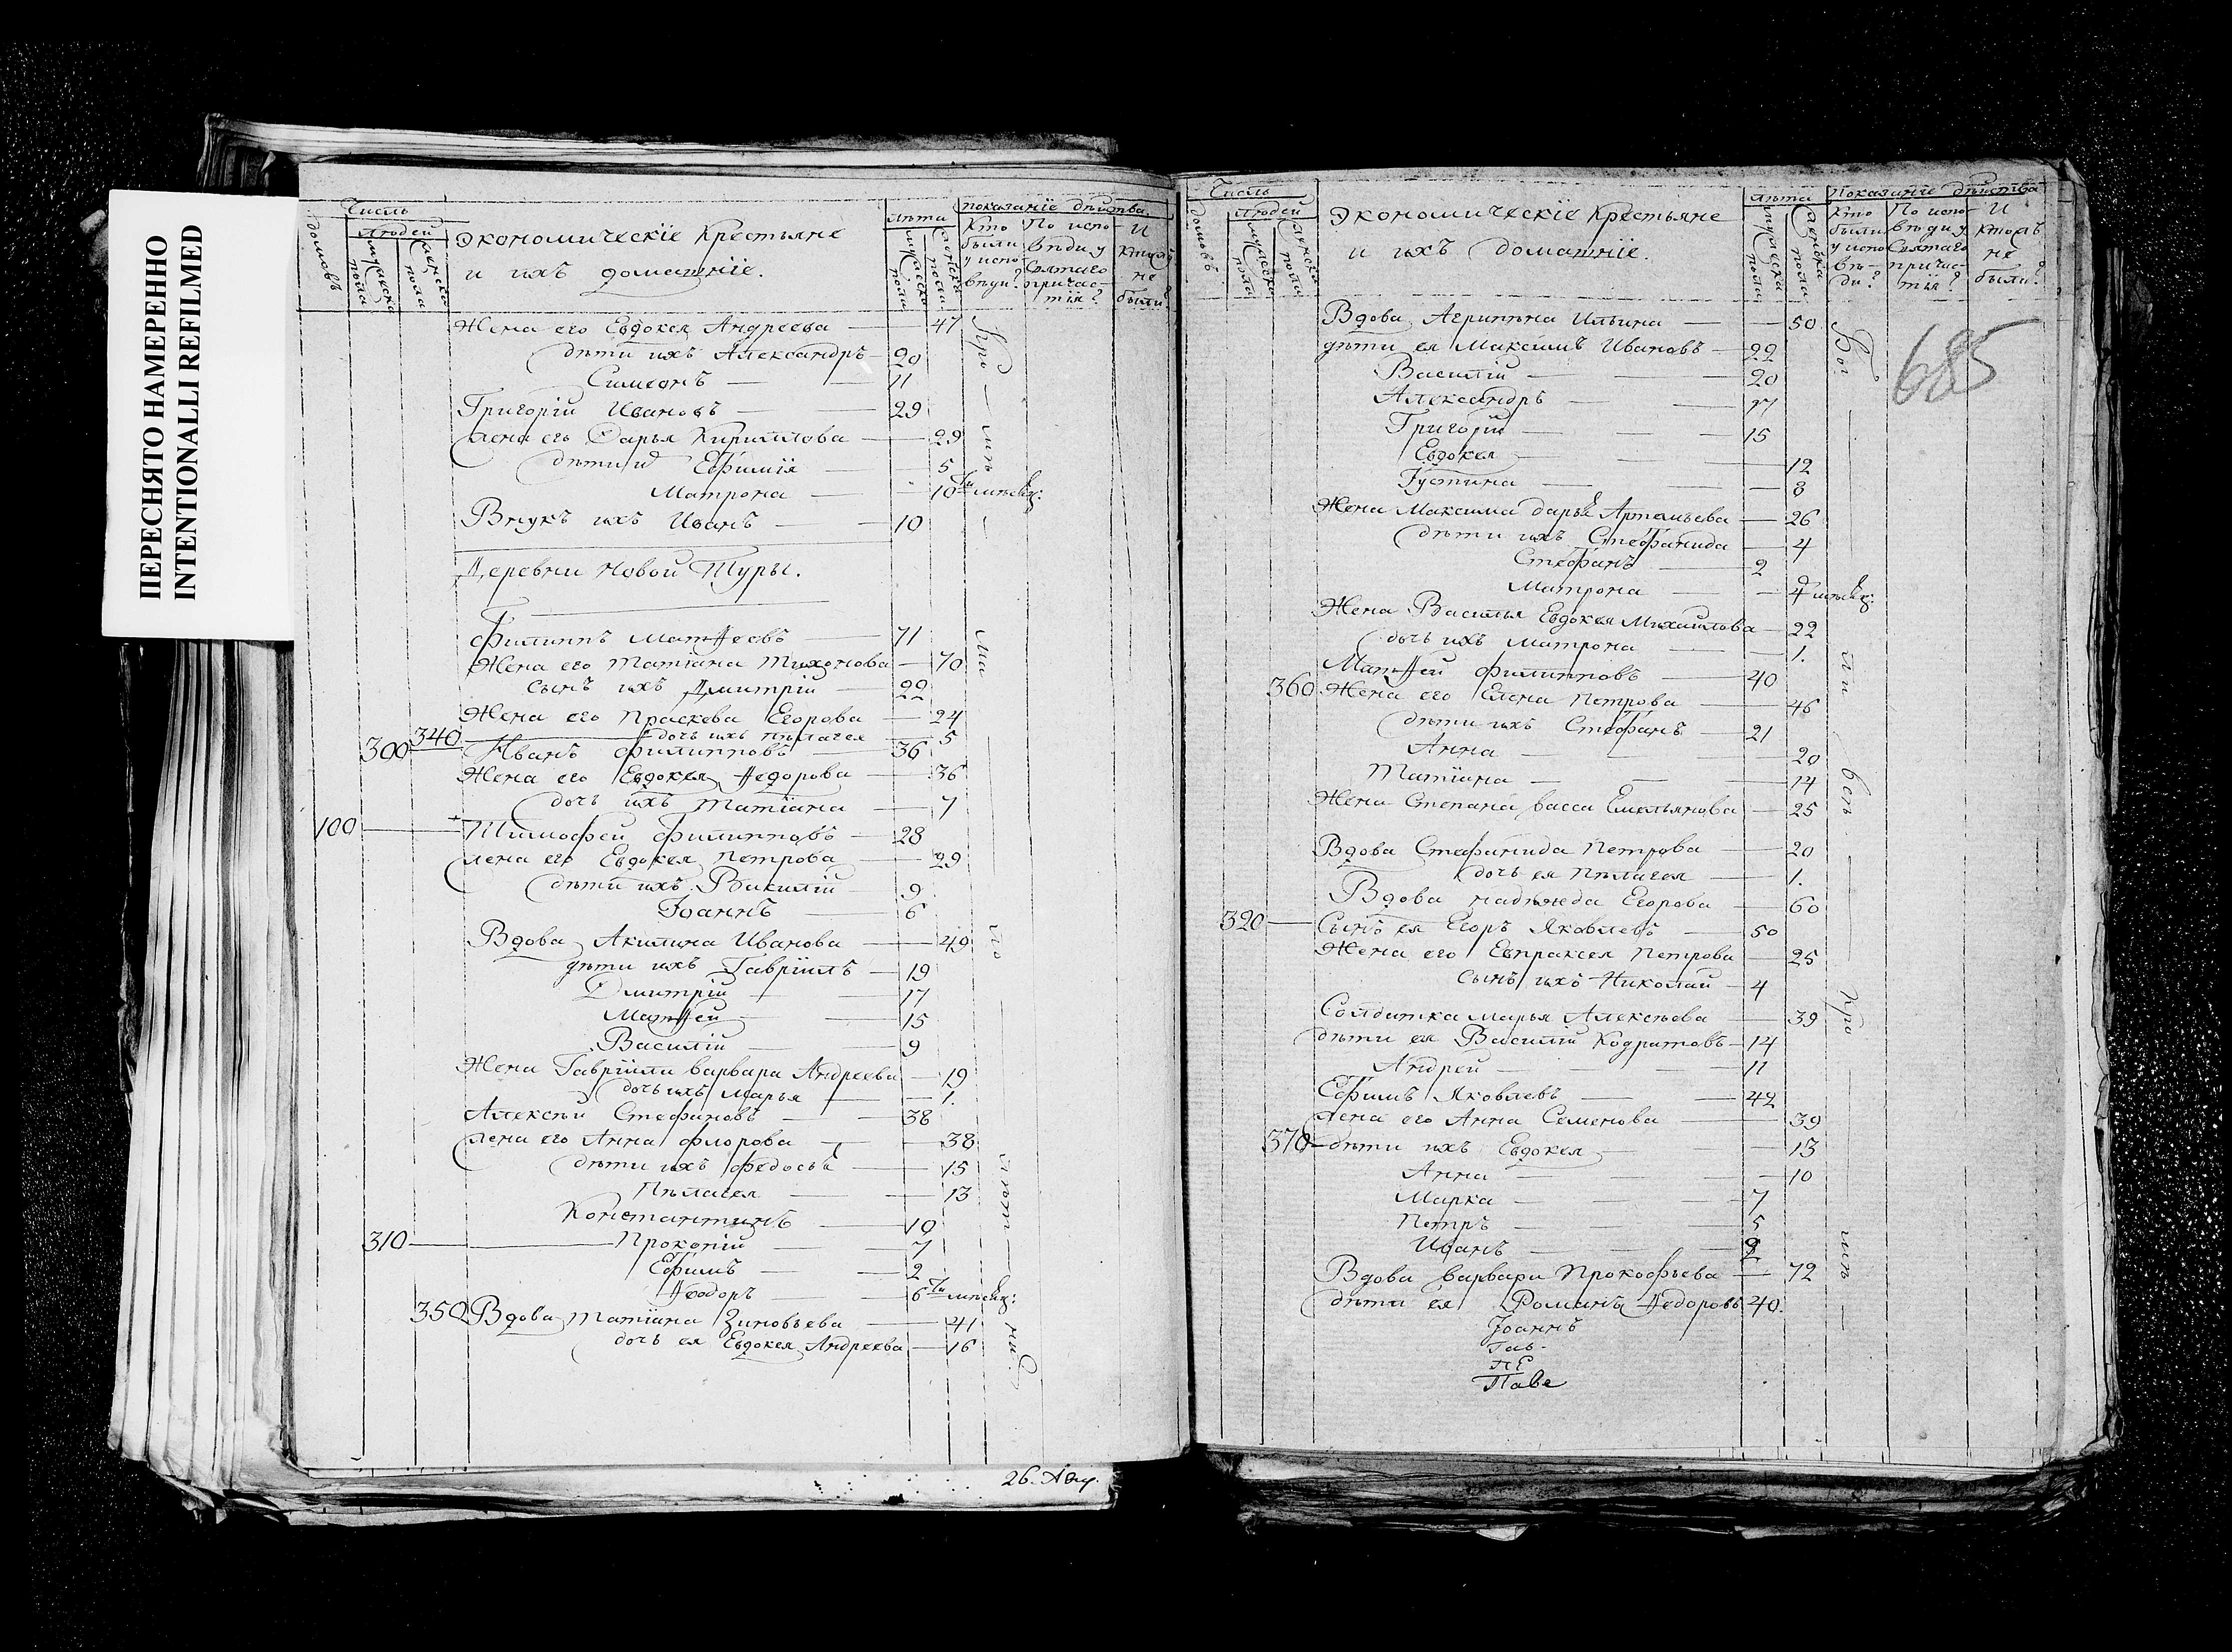 ПЕРЕСНЯТО НАМЕРЕННО
INTENTIONALLI REFILMED
Число
Людей
домовъ
мужеска пола
женска пола
Экономическіе Крестьяне
и ихъ домашніе.
Лѣта
мужеска пола
женска пола
показаніе дѣйства.
Кто были у испо-вѣди?
По испо-вѣди у Святаго причас-тія?
И кто
не были?
Жена его Евдокея Андреева — 47
дѣти ихъ Александръ — 20
Симеонъ — 11
Григорій Ивановъ — 29
Жена его Дарья Кириллова — 29
дѣти Ефимія — 5
Матрона — 10ти мѣсяц:
Внукъ ихъ Иванъ — 10
Деревни Новой Туры.
Филиппъ Матѳеевъ — 71
Жена его Матіана Тихонова — 70
сынъ ихъ Дмитрій — 22
Жена его Праскева Егорова — 24
340 — дочь ихъ Пѣлагея — 5
300 Иванъ Филипповъ — 36
Жена его Евдокея Ѳедорова — 36
дочь ихъ Матіана — 7
100 — Тимофей Филипповъ — 28
Жена его Евдокея Петрова — 29
дѣти ихъ Василій — 9
Іоаннъ — 6
Вдова Акилина Иванова — 49
дѣти ихъ Гавріилъ — 19
Дмитрій — 17
Матѳей — 15
Василій — 9
Жена Гавріила Варвара Андреева — 19
дочь ихъ Марья — 1.
Алексѣй Стефановъ — 38
Жена его Анна Флорова — 38
дѣти ихъ Федосья — 15
Пѣлагея — 13
Константинъ — 10
310 — Прокопій — 7
Ефимъ — 2
Ѳеодоръ — 6ти мѣсяц:
350 Вдова Татіана Зиновьева — 41
дочь ея Евдокея Андреева — 16
26. Авг.
Число
Людей
домовъ
мужеска пола
женска пола
Экономическіе Крестьяне
и ихъ домашніе.
Лѣта
мужеска пола
женска пола
Показаніе дѣйства
Кто были у испо-вѣ-ди?
По испо-вѣди у Святаго причас-тія?
И кто
не были?
685
Вдова Агрипѣна Ильина — 50
дѣти ея Максимъ Ивановъ — 22
Василій — 20
Александръ — 17
Григорій — 15
Евдокея — 12
Іустина — 8
Жена Максима Дарья Артемьева — 26
дѣти ихъ Стефанида — 4
Стефанъ — 2
Матрона — 4 мѣсяц:
Жена Василья Евдокея Михайлова — 22
дочь ихъ Матрона — 1.
Матѳей Филипповъ — 40
360 Жена его Елена Петрова — 46
дѣти ихъ Стефанъ — 21
Анна — 20
Татіана — 14
Жена Степана Васса Емельянова — 25
Вдова Стефанида Петрова — 20
дочь ея Пѣлагея — 1.
Вдова Надежда Егорова — 60
320 — Сынъ ея Егоръ Яковлевъ — 50
Жена его Евпраксея Петрова — 25
сынъ ихъ Николай — 4
Солдатка Марья Алексѣева — 39
дѣти ея Василій Кодратовъ — 14
Андрей — 11
Ефимъ Яковлевъ — 42
Жена его Анна Семенова — 39
370 — дѣти ихъ Евдокея — 13
Анна — 10
Марка — 7
Петръ — 5
Иванъ — 2
Вдова Варвара Прокофьева — 72
дѣти ея Романъ Ѳедоровъ 40.
Іоаннъ
Гав-
пЕ
Паве